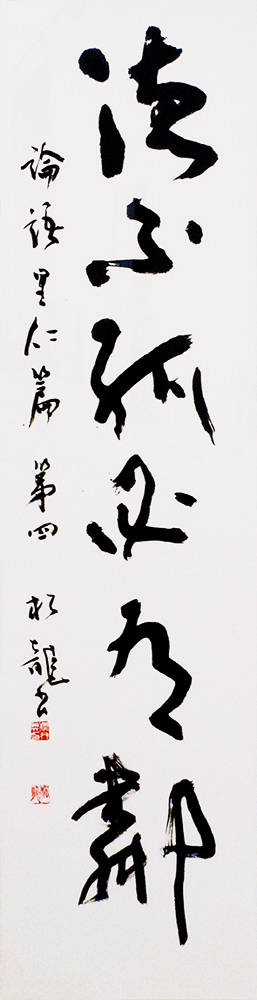 德不孤必有鄰
論語里仁篇 第四 松龍書